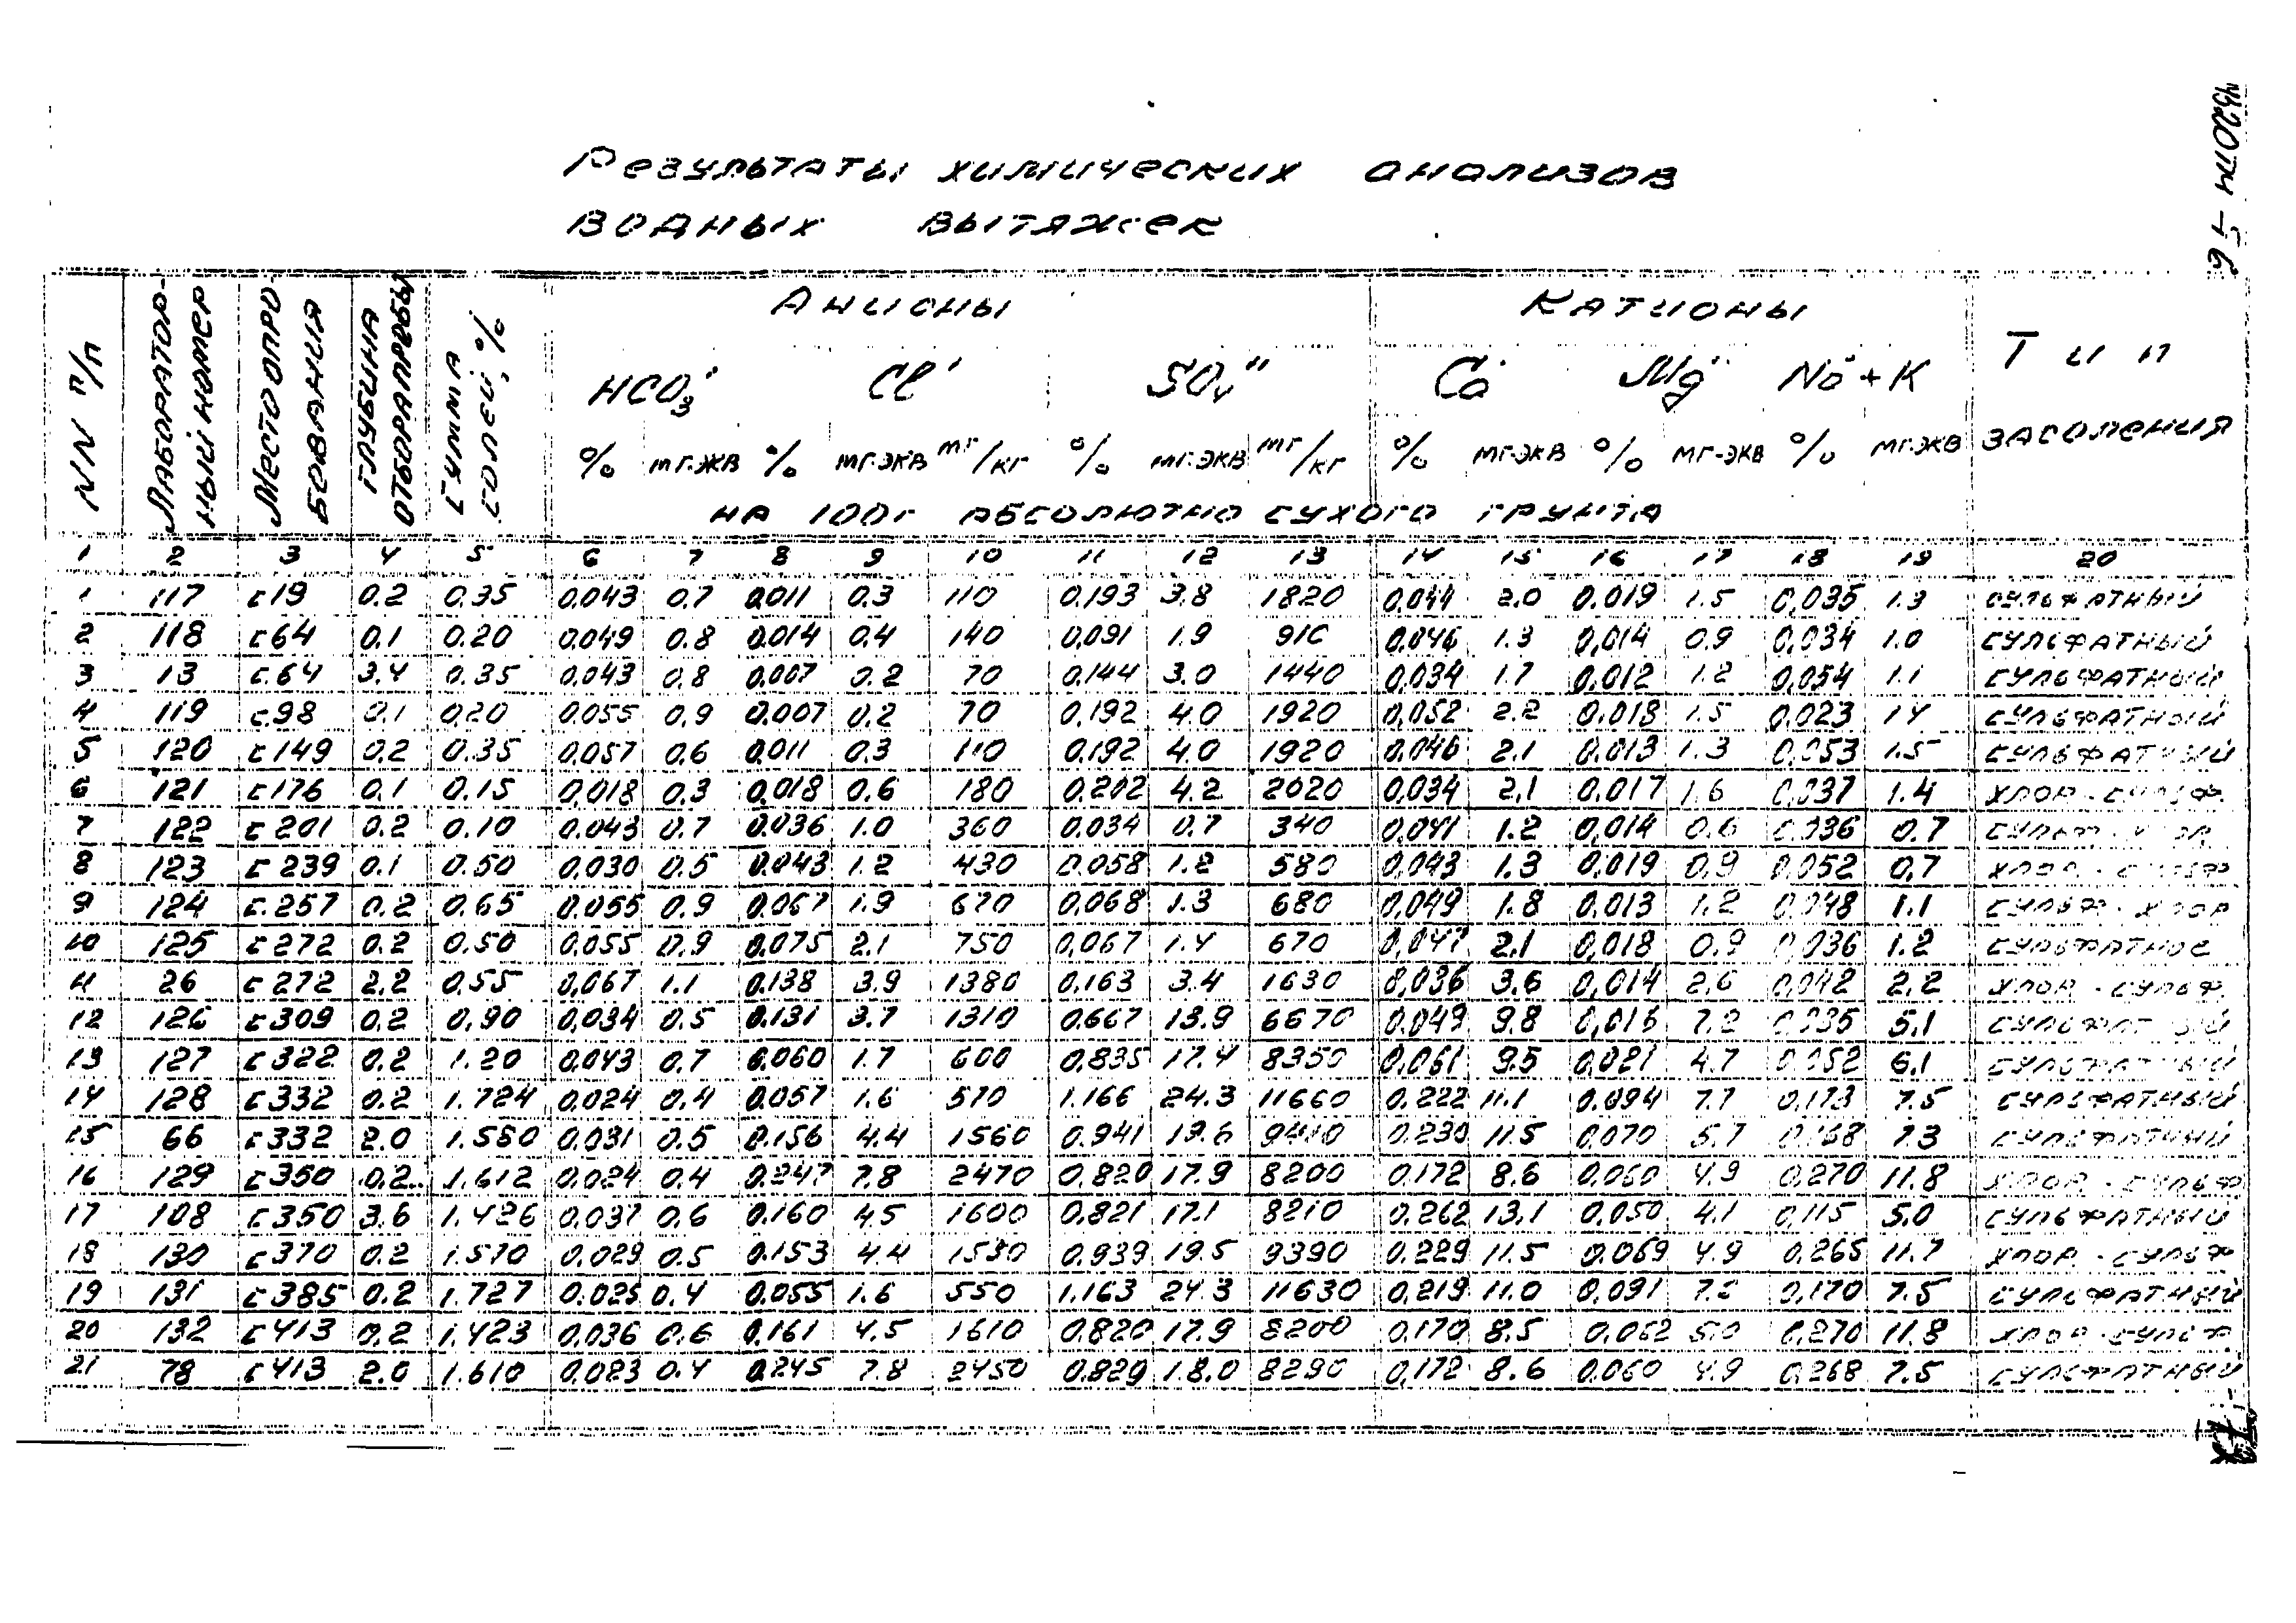 4320тм-5 6
Результаты химических анализов
водных вытяжек
NN п/п Лабораторный номер Место опробования Глубина отбора пробы Сумма солей, % Анионы Катионы Тип засоления
HCO₃' Cl' SO₄'' Ca¨ Mg¨ Na+K
% мг.экв % мг.экв мг/кг % мг.экв мг/кг % мг-экв % мг-экв % мг.экв
на 100г абсолютно сухого грунта
1 2 3 4 5 6 7 8 9 10 11 12 13 14 15 16 17 18 19 20
1 117 с19 0.2 0.35 0.043 0.7 0.011 0.3 110 0.193 3.8 1820 0.044 2.0 0.019 1.5 0.035 1.3 сульфатный
2 118 с64 0.1 0.20 0.049 0.8 0.014 0.4 140 0,091 1.9 910 0,046 1.3 0,014 0.9 0.034 1.0 сульфатный
3 13 с.64 3.4 0.35 0.043 0.8 0.007 0.2 70 0.144 3.0 1440 0,034 1.7 0.012 1.2 0,054 1.1 сульфатный
4 119 с.98 0.1 0,20 0.055 0.9 0.007 0.2 70 0.192 4.0 1920 0,052 2.2 0.018 1.5 0.023 14 сульфатный
5 120 с149 0.2 0.35 0.057 0.6 0.011 0.3 110 0,192 4.0 1920 0.046 2.1 0.013 1.3 0.053 1.5 сульфатный
6 121 с176 0.1 0.15 0,018 0.3 0,018 0.6 180 0.202 4.2 2020 0,034 2.1 0,017 1.6 0,037 1.4 хлор-сульф.
7 122 с201 0.2 0.10 0.043 0.7 0.036 1.0 360 0.034 0.7 340 0,041 1.2 0,014 0.6 0.036 0.7 сульф.-хлор
8 123 с239 0.1 0.50 0,030 0.5 0.043 1.2 430 0.058 1.2 580 0,043 1.3 0,019 0,9 0,052 0.7 хлор.-сульф
9 124 с.257 0.2 0.65 0.055 0.9 0.067 1.9 670 0,068 1.3 680 0,049 1.8 0.013 1.2 0,048 1.1 сульф.-хлор
10 125 с272 0.2 0.50 0,055 0.9 0.075 2.1 750 0,067 1.4 670 0,047 2.1 0,018 0.9 0,036 1.2 сульфатное
11 26 с272 2.2 0,55 0,067 1.1 0.138 3.9 1380 0,163 3.4 1630 0,036 3.6 0,014 2.6 0,042 2.2 хлор.-сульф.
12 126 с309 0.2 0,90 0,034 0.5 0.131 3.7 1310 0.667 13.9 6670 0.049 9.8 0,016 7.2 0.035 5.1 сульфатный
13 127 с322 0.2 1.20 0.043 0.7 0.060 1.7 600 0,835 17.4 8350 0,061 9.5 0,021 4.7 0.052 6.1 сульфатный
14 128 с332 0.2 1.724 0,024 0.4 0.057 1.6 570 1.166 24.3 11660 0.222 11.1 0.094 7.7 0,173 7.5 сульфатный
15 66 с332 2.0 1.580 0,031 0.5 0.156 4.4 1560 0.941 19.6 9410 0.230 11.5 0,070 5.7 0,168 7.3 сульфатный
16 129 с350 0.2 1.612 0.024 0.4 0.247 7.8 2470 0.820 17.9 8200 0.172 8.6 0,060 4.9 0,270 11.8 хлор.-сульф
17 108 с350 3.6 1.426 0.037 0.6 0.160 4.5 1600 0.821 17.1 8210 0.262 13.1 0,050 4.1 0,115 5.0 сульфатный
18 130 с370 0.2 1.570 0.029 0.5 0.153 4.4 1530 0.939 19.5 9390 0.229 11.5 0.069 4.9 0.265 11.7 хлор.-сульф
19 131 с385 0.2 1.727 0.025 0.4 0.055 1.6 550 1.163 24.3 11630 0,219 11.0 0,091 7.2 0,170 7.5 сульфатный
20 132 с413 0.2 1.423 0,036 0.6 0,161 4.5 1610 0.820 17.9 8200 0.170 8.5 0,062 5.0 0.270 11.8 хлор-сульф
21 78 с413 2.0 1.610 0,023 0.4 0.245 7.8 2450 0.829 18.0 8290 0,172 8.6 0,060 4.9 0,268 7.5 сульфатный